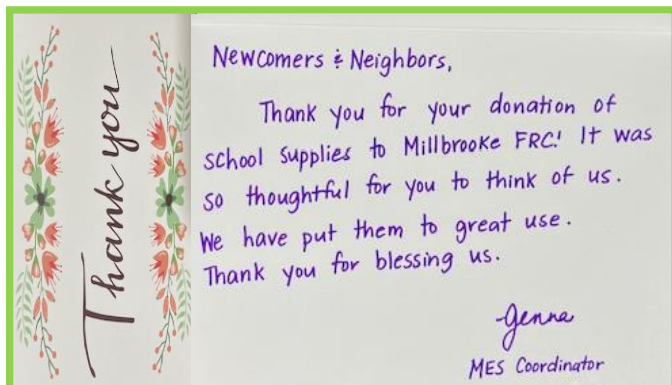 Thank you
Newcomers & Neighbors,
Thank you for your donation of
school supplies to Millbrooke FRC! It was
so thoughtful for you to think of us.
We have put them to great use.
Thank you for blessing us.
Jenna
MES Coordinator